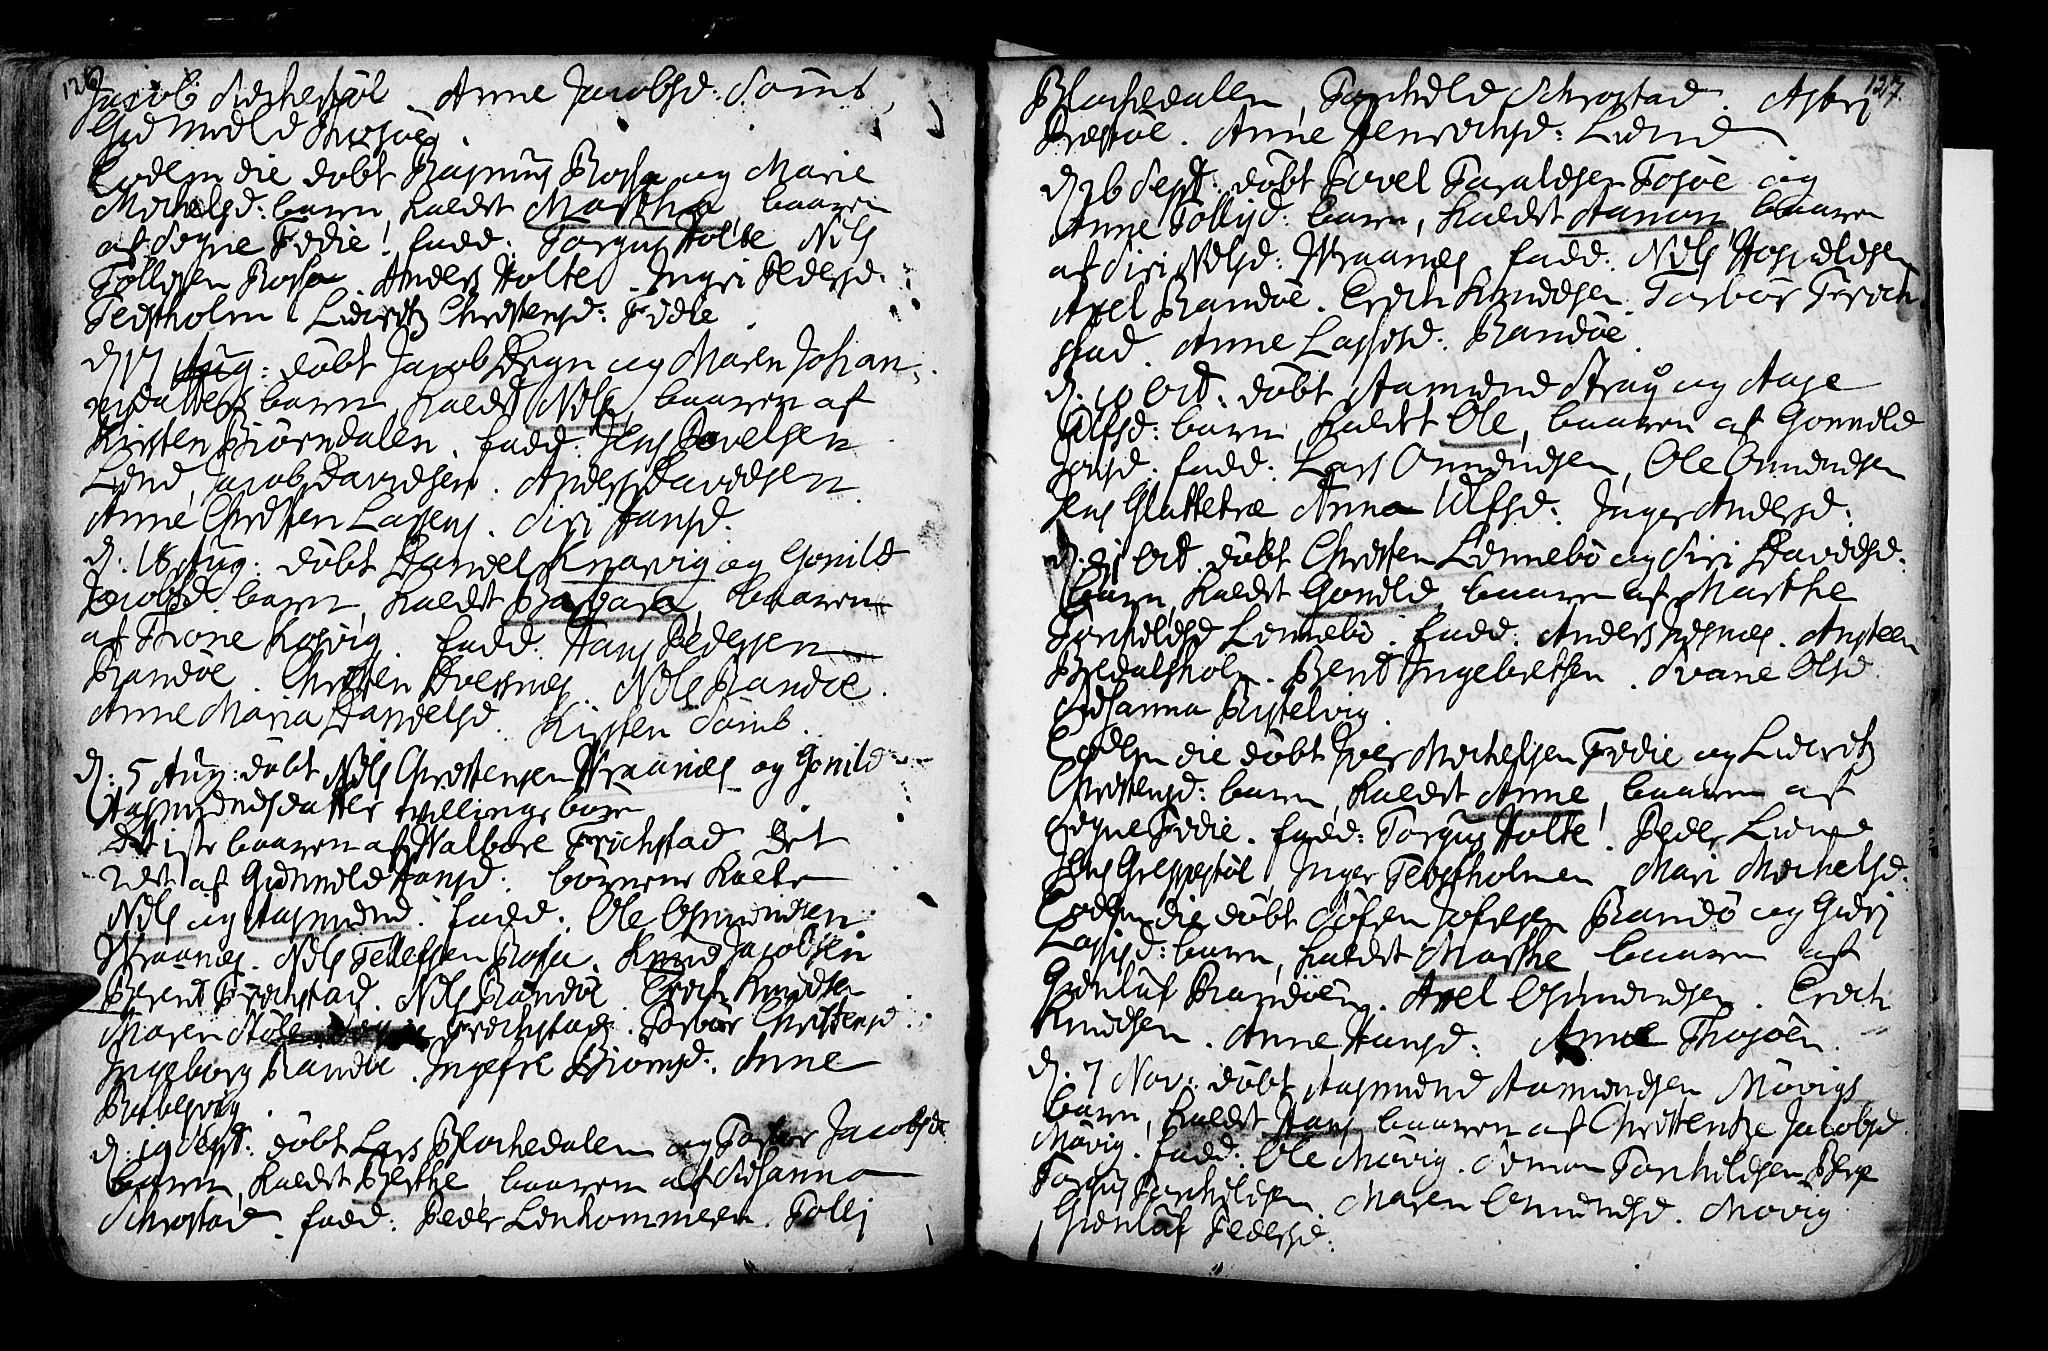 126
Jacob Kirkestøl. Anne Jacobsd: Somb,
Gunnild Thosøe.
Eodem die døbt Rasmus Rossa og Marie
Michelsd: barn, kaldet Martha, baaren
af Segne Fidie! fadd: Torgus Holte Nils
Tollissen Rossa. Anders Holte. Ingri Pedersd:
Teistholm. Liveretz Christensd: Fidie.
d. 17 Aug: døbt Jacob Degn og Maren Johan-
nisdatters barn, kaldet Nils, baaren af
Kirsten Biørndalen. fadd: Jens Povelsen
Lund, Jacob Davidsen. Anders Davidsen.
Anne Christen Lassens. Siri Hansd:
d: 18 Aug: døbt Daniel Knarvig og Gonild
Jacobsd: barn, kaldet Barbara, baaren
af Trone Kosvig. fadd: Hans Pedersen
Randøe. Christen Dvesnes. Nils Randøe.
Anne Maria Danielsd. Kirsten Somb.
d: 5 Aug: døbt Nils Christensen Wraanes og Gonild
Aasmundsdatter tvillings børn
Det 1ste baaren af Walbore Frichstad. Det
2det af Gunnild Hansd: børnene kaldte
Nils og Aasmund. fadd: Ole Osmundsen
Wraanes. Nils Tellefsen Rossa. Knud Jacobsen
Berent Frichstad. Nils Randøe. Erich Knudsen
Maren Frichstad. Torbor Christensd
Ingeborg Randøe. Ingefre Biørnsd: Anne
d: 19 Sept: døbt Lars Blochedalen og Torbor Jacobsd:
barn, kaldet Berthe, baaren af Susanna
Schrostad. fadd: Peder Linhommeren. Tollij
127.
Blochedalen, Torkild Schrostad. Asbri
Præstøe. Anne Henrichsd: Lund
d. 26 Sept: døbt Povel Taraldsen Fosøe og
Anne Tollisd: barn, kaldet Aanon, baaren
af Siri Nilsd: Wraanes. fadd: Nils
Axel Randøe. Erich Knudsen. Torbor Frich-
stad. Anne Lassisd: Randøe.
d: 10 Oct: døbt Aamund Straij og Aase
Ulfsd: barn, kaldet Ole, baaren af Gonnild
Jonsd: fadd: Lars Omundsen, Ole Omundsen
Jens Glattetræ Anna Ulfsd: Inger Andersd:
d: 21 Oct. døbt Christen Linnebo og Siri Davidsd:
barn, kaldet Gonild, baaren af Marthe
Torkildsd Linnebo. fadd: Anders Augsteen
Bredalsholm. Bent Ingebretsen. Svane Olsd.
Susanna Rystelvig.
Eodem die døbt Iver Michelsen Fidie og Liveretz
Christensd: barn, kaldet Anne, baaren af
Segne Fidie. fadd: Torgus Holte! Peder Lund
Jens Greppestøl, Inger Teistholmen Mari Michelsd:
Eodem die døbt Søfren Josepsen Randø og Guri
Lassisd: barn, kaldet Marthe baaren af
Gunluf Randøen. Axel Osmundsen. Erich
Knudsen. Anne Hansd: Anne Thosøen.
d. 7 Nov: døbt Aasmund Aamundsen Møvigs
barn, kaldet Hans baaren af Christentze Jacobsd.
Møvig. fadd: Ole Møvig. Simon Torkildsen
Torgus Torkildsen. Maren Osmundsd. Møvig
Gunluf Pedersd: